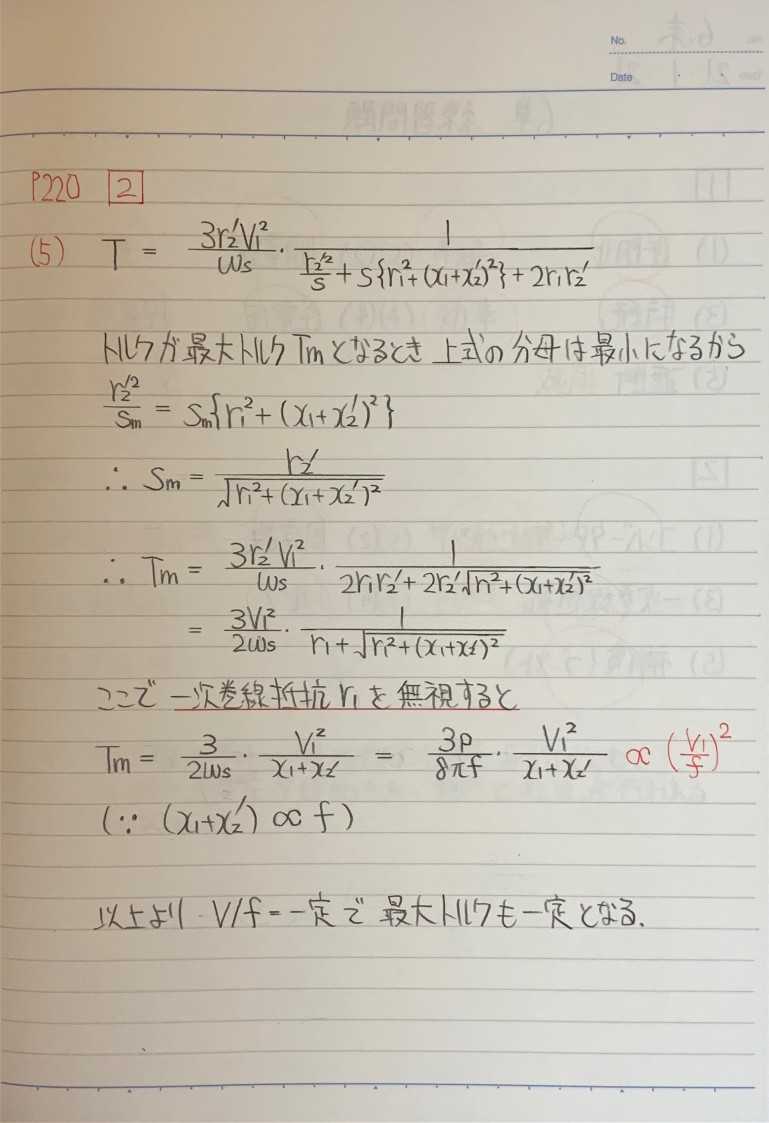 No.
Date
P220 2
(5) T = 3r₂′V₁²/ωs · 1/(r₂′²/s + s{r₁²+(x₁+x₂′)²} + 2r₁r₂′)
トルクが最大トルクTmとなるとき 上式の分母は最小になるから
r₂′²/Sm = Sm{r₁²+(x₁+x₂′)²}
∴ Sm = r₂′/√(r₁²+(x₁+x₂′)²)
∴ Tm = 3r₂′V₁²/ωs · 1/(2r₁r₂′+2r₂′√(r₁²+(x₁+x₂′)²))
= 3V₁²/2ωs · 1/(r₁+√(r₁²+(x₁+x₂′)²))
ここで 一次巻線抵抗 r₁を無視すると
Tm = 3/2ωs · V₁²/(x₁+x₂′) = 3p/8πf · V₁²/(x₁+x₂′) ∝ (V₁/f)²
(∵ (x₁+x₂′) ∝ f)
以上より V/f=一定で 最大トルクも一定となる.